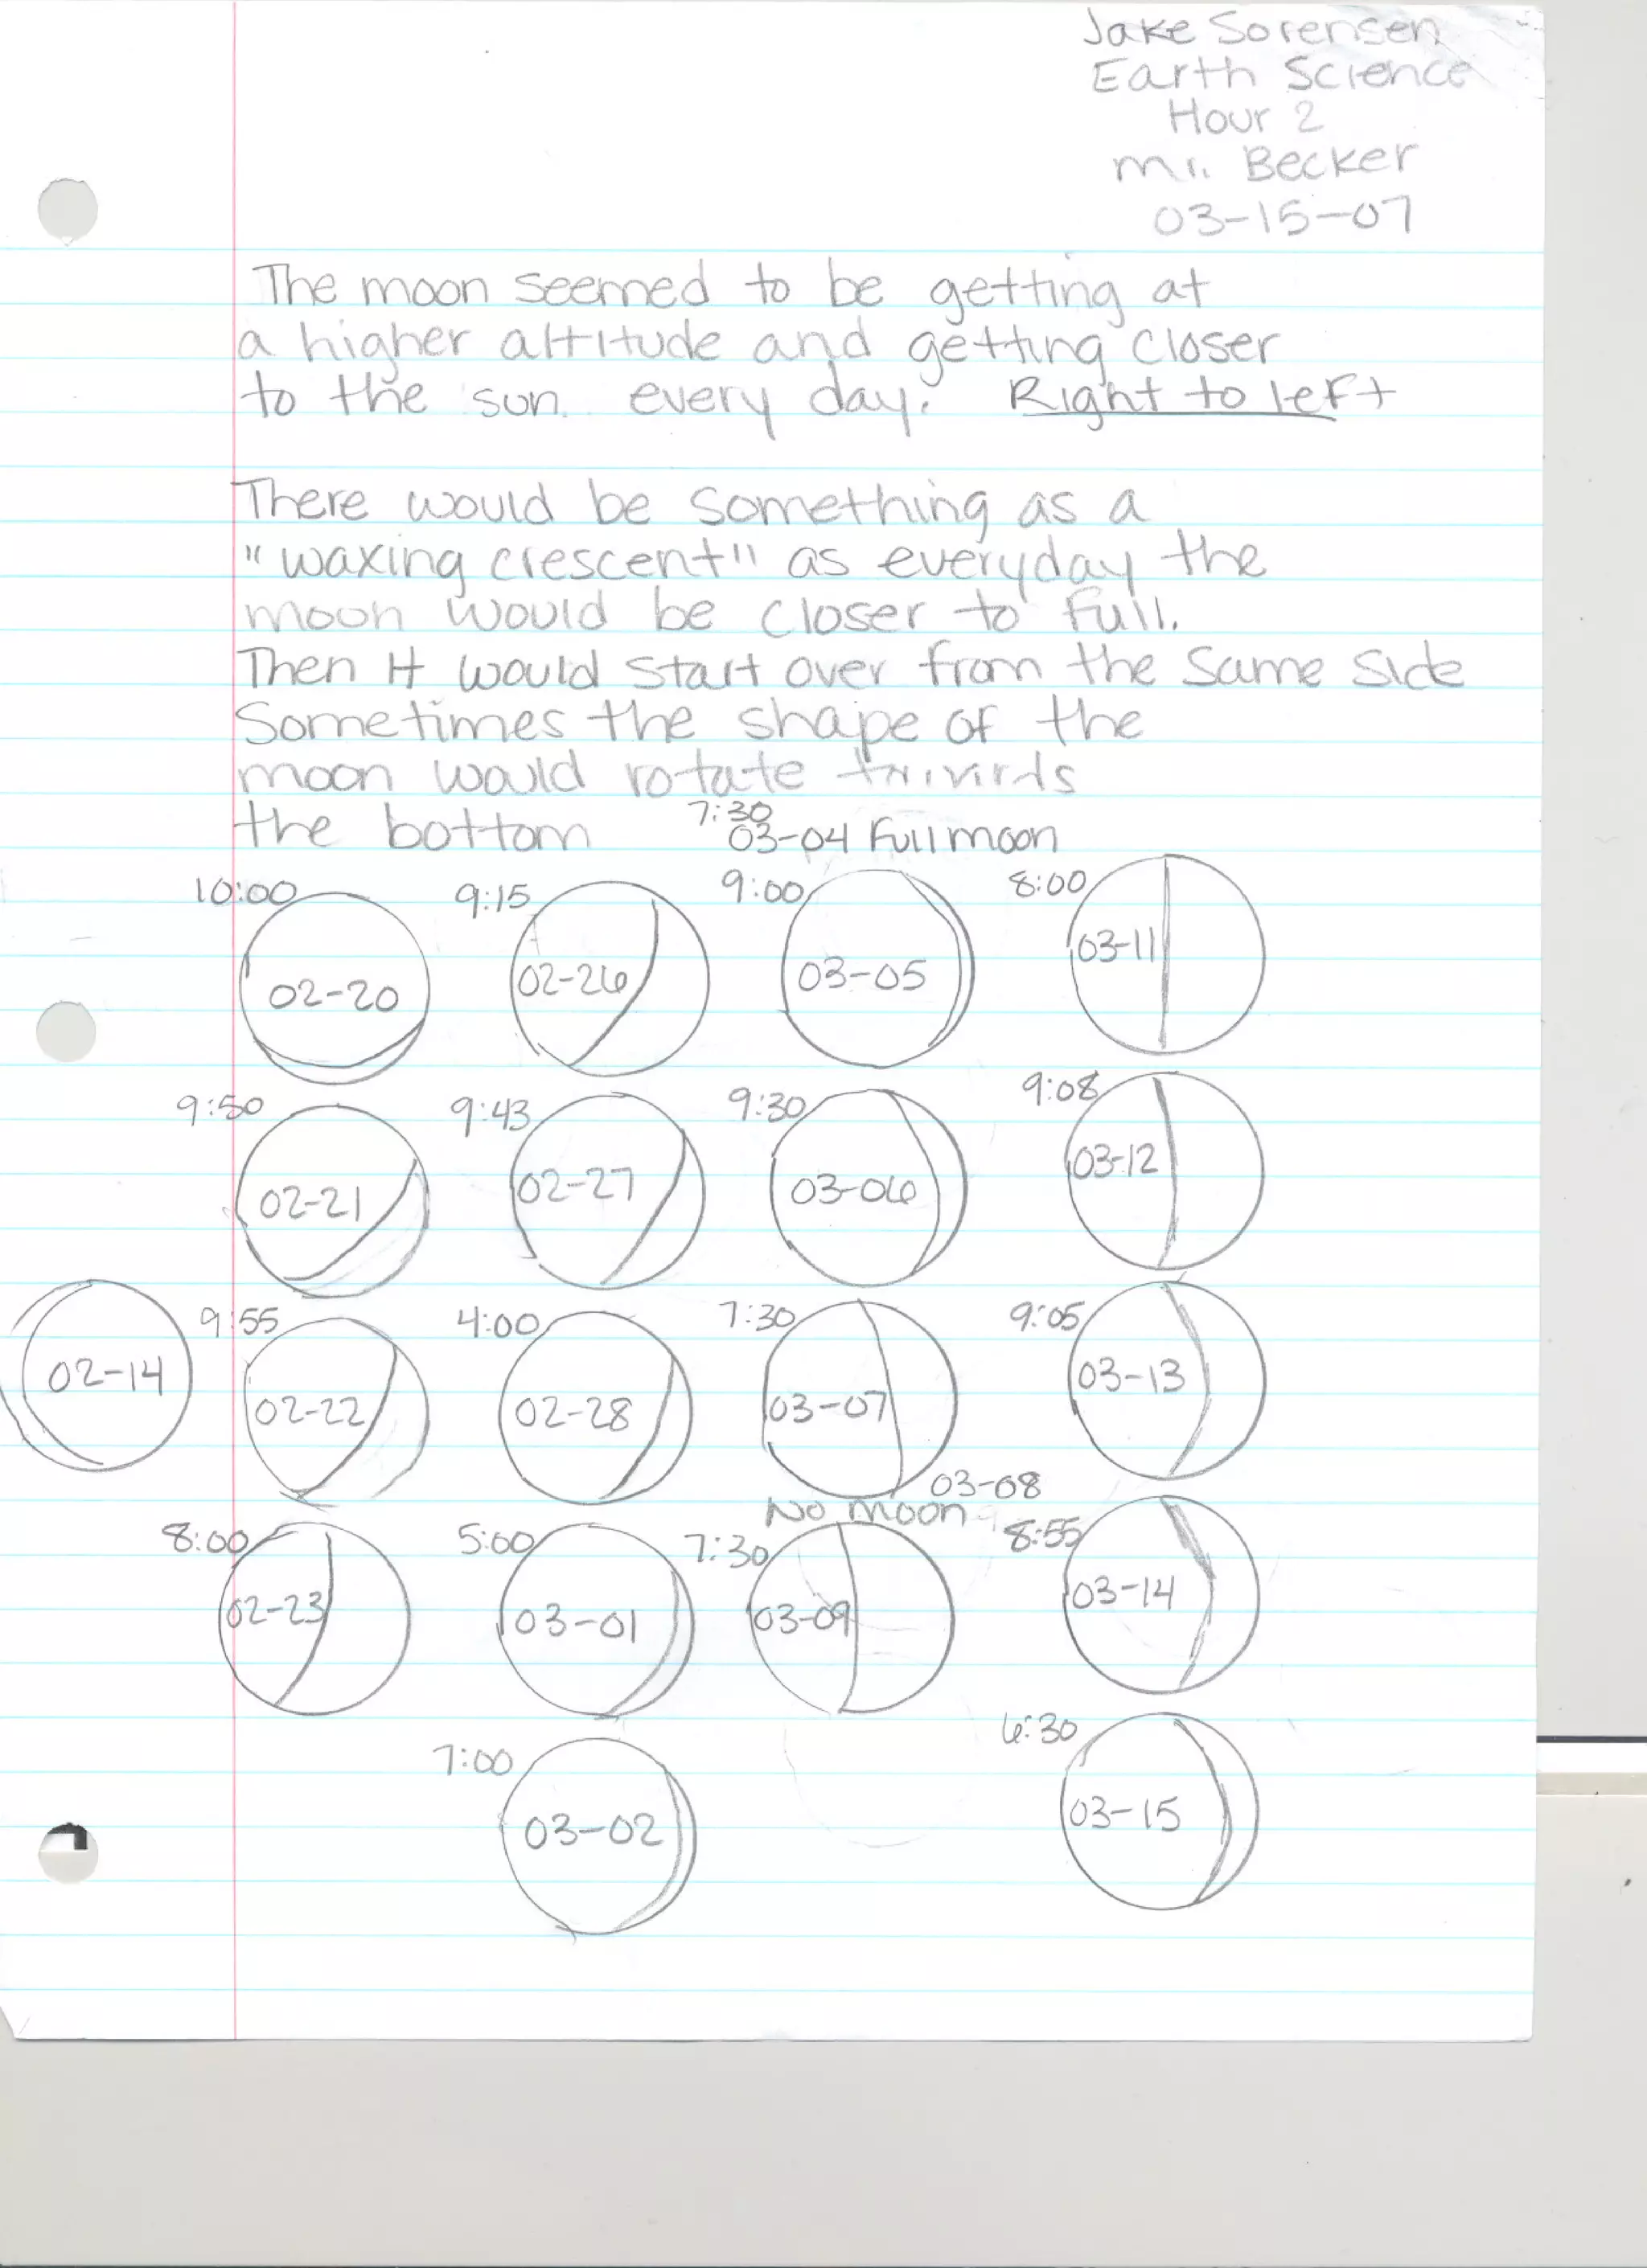 Jake Sorensen
Earth Science
Hour 2
Mr. Becker
03-15-07
The moon seemed to be getting at
a higher altitude and getting closer
to the sun every day. Right to left
There would be something as a
"waxing crescent" as everyday the
moon would be closer to full.
Then it would start over from the same side
Sometimes the shape of the
moon would rotate
the bottom
7:30
03-04 Full moon
10:00 9:15 9:00 8:00
02-20 02-26 03-05 03-11
9:50 9:43 9:30 9:08
02-21 02-27 03-06 03-12
9:55 4:00 7:30 9:05
02-14 02-22 02-28 03-07 03-13
03-08
No moon
8:00 5:00 7:30 8:55
02-23 03-01 03-09 03-14
7:00 6:30
03-02 03-15